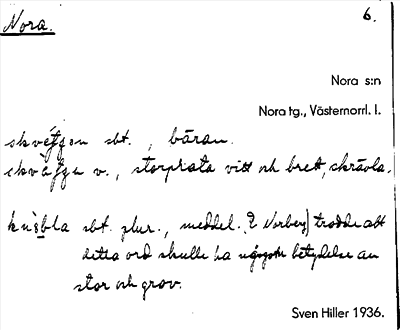 Nora. 6.
Nora s:n
Nora tg., Västernorrl. l.
sbt., bäran.
v., storprata vitt och brett, skrävla.
sbt. plur., meddel. (E Norberg) trodde att
detta ord skulle ha något betydelse av
stor och grov.
Sven Hiller 1936.